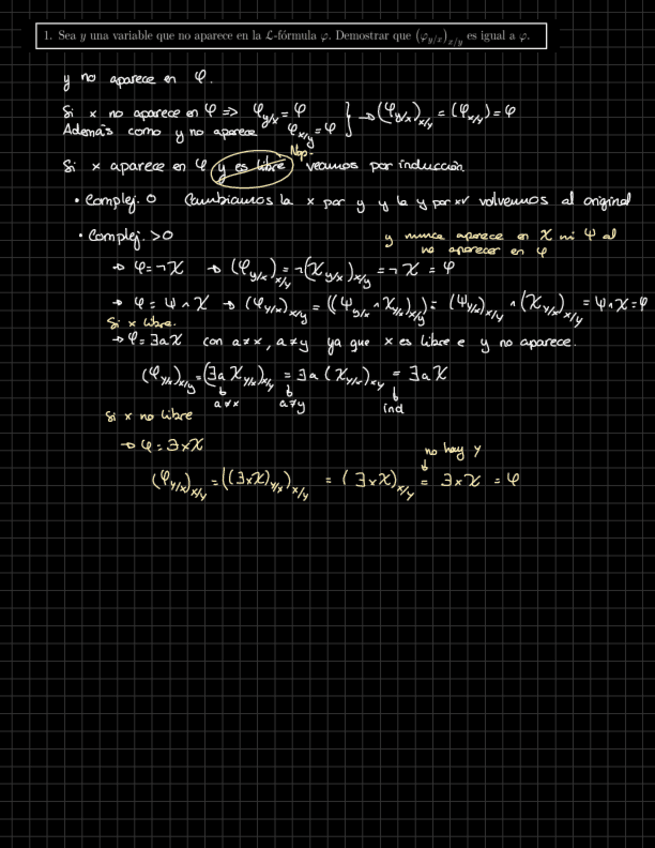 1. Sea y una variable que no aparece en la ℒ-fórmula φ. Demostrar que (φ_{y/x})_{x/y} es igual a φ.
y no aparece en φ.
Si x no aparece en φ => φ_{y/x} = φ
Además como y no aparece φ_{x/y} = φ } → (φ_{y/x})_{x/y} = (φ_{x/y}) = φ
Nop.
Si x aparece en φ y es libre veamos por inducción
• Complej. 0 Cambiamos la x por y y la y por x volvemos al original
• Complej. >0
y nunca aparece en χ ni ψ al
no aparecer en φ
→ φ = ¬χ → (φ_{y/x})_{x/y} = ¬(χ_{y/x})_{x/y} = ¬χ = φ
→ φ = ψ ∧ χ → (φ_{y/x})_{x/y} = ((ψ_{y/x} ∧ χ_{y/x})_{x/y}) = (ψ_{y/x})_{x/y} ∧ (χ_{y/x})_{x/y} = ψ ∧ χ = φ
Si x libre.
→ φ = ∃aχ con a≠x, a≠y ya que x es libre e y no aparece.
(φ_{y/x})_{x/y} = (∃a χ_{y/x})_{x/y} = ∃a (χ_{y/x})_{x/y} = ∃aχ
a≠x a≠y ind
Si x no libre
→ φ = ∃xχ
no hay y
(φ_{y/x})_{x/y} = ((∃xχ)_{y/x})_{x/y} = (∃xχ)_{x/y} = ∃xχ = φ